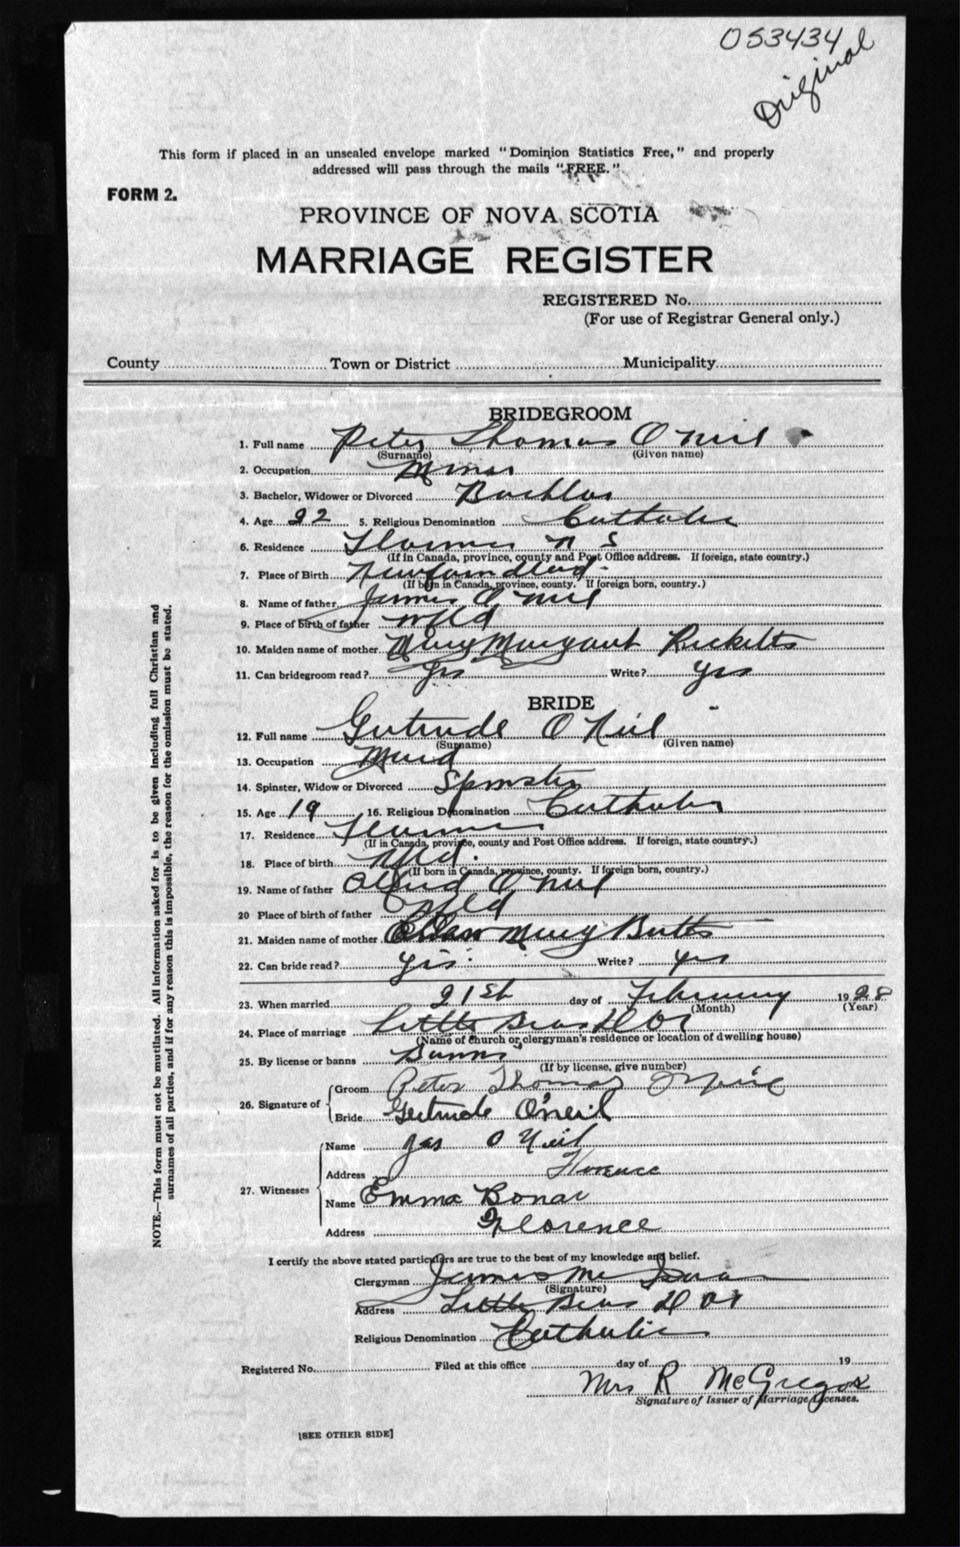 053434
Original
This form if placed in an unsealed envelope marked "Dominion Statistics Free," and properly
addressed will pass through the mails "FREE."
FORM 2.
PROVINCE OF NOVA SCOTIA
MARRIAGE REGISTER
REGISTERED No.
(For use of Registrar General only.)
County Town or District Municipality
BRIDEGROOM
1. Full name Peter Thomas O Neil
(Surname) (Given name)
2. Occupation
3. Bachelor, Widower or Divorced
4. Age 22 5. Religious Denomination Catholic
6. Residence N S
(If in Canada, province, county and Post Office address. If foreign, state country.)
7. Place of Birth Newfoundland
(If born in Canada, province, county. If foreign born, country.)
8. Name of father James O Neil
9. Place of birth of father Nfld
10. Maiden name of mother Mary Margaret Ricketts
11. Can bridegroom read? Yes Write? Yes
BRIDE
12. Full name Gertrude O Neil
(Surname) (Given name)
13. Occupation Maid
14. Spinster, Widow or Divorced Spinster
15. Age 19 16. Religious Denomination Catholic
17. Residence
(If in Canada, province, county and Post Office address. If foreign, state country.)
18. Place of birth Nfld.
(If born in Canada, province, county. If foreign born, country.)
19. Name of father O Neil
20 Place of birth of father Nfld
21. Maiden name of mother Mary Butts
22. Can bride read? Yes. Write? Yes
23. When married 21st day of February 1928
(Month) (Year)
24. Place of marriage Little Bras D Or
(Name of church or clergyman's residence or location of dwelling house)
25. By license or banns Banns
(If by license, give number)
26. Signature of Groom Peter Thomas O'Neil
Bride Gertrude O'neil
27. Witnesses Name Jas O Neil
Address Florence
Name Emma Bonar
Address Florence
I certify the above stated particulars are true to the best of my knowledge and belief.
Clergyman James Mc
(Signature)
Address Little Bras D Or
Religious Denomination Catholic
Registered No. Filed at this office day of 19
Mrs R McGregor
Signature of Issuer of Marriage Licenses.
[SEE OTHER SIDE]
NOTE.—This form must not be mutilated. All information asked for is to be given including full Christian and
surnames of all parties, and if for any reason this is impossible, the reason for the omission must be stated.